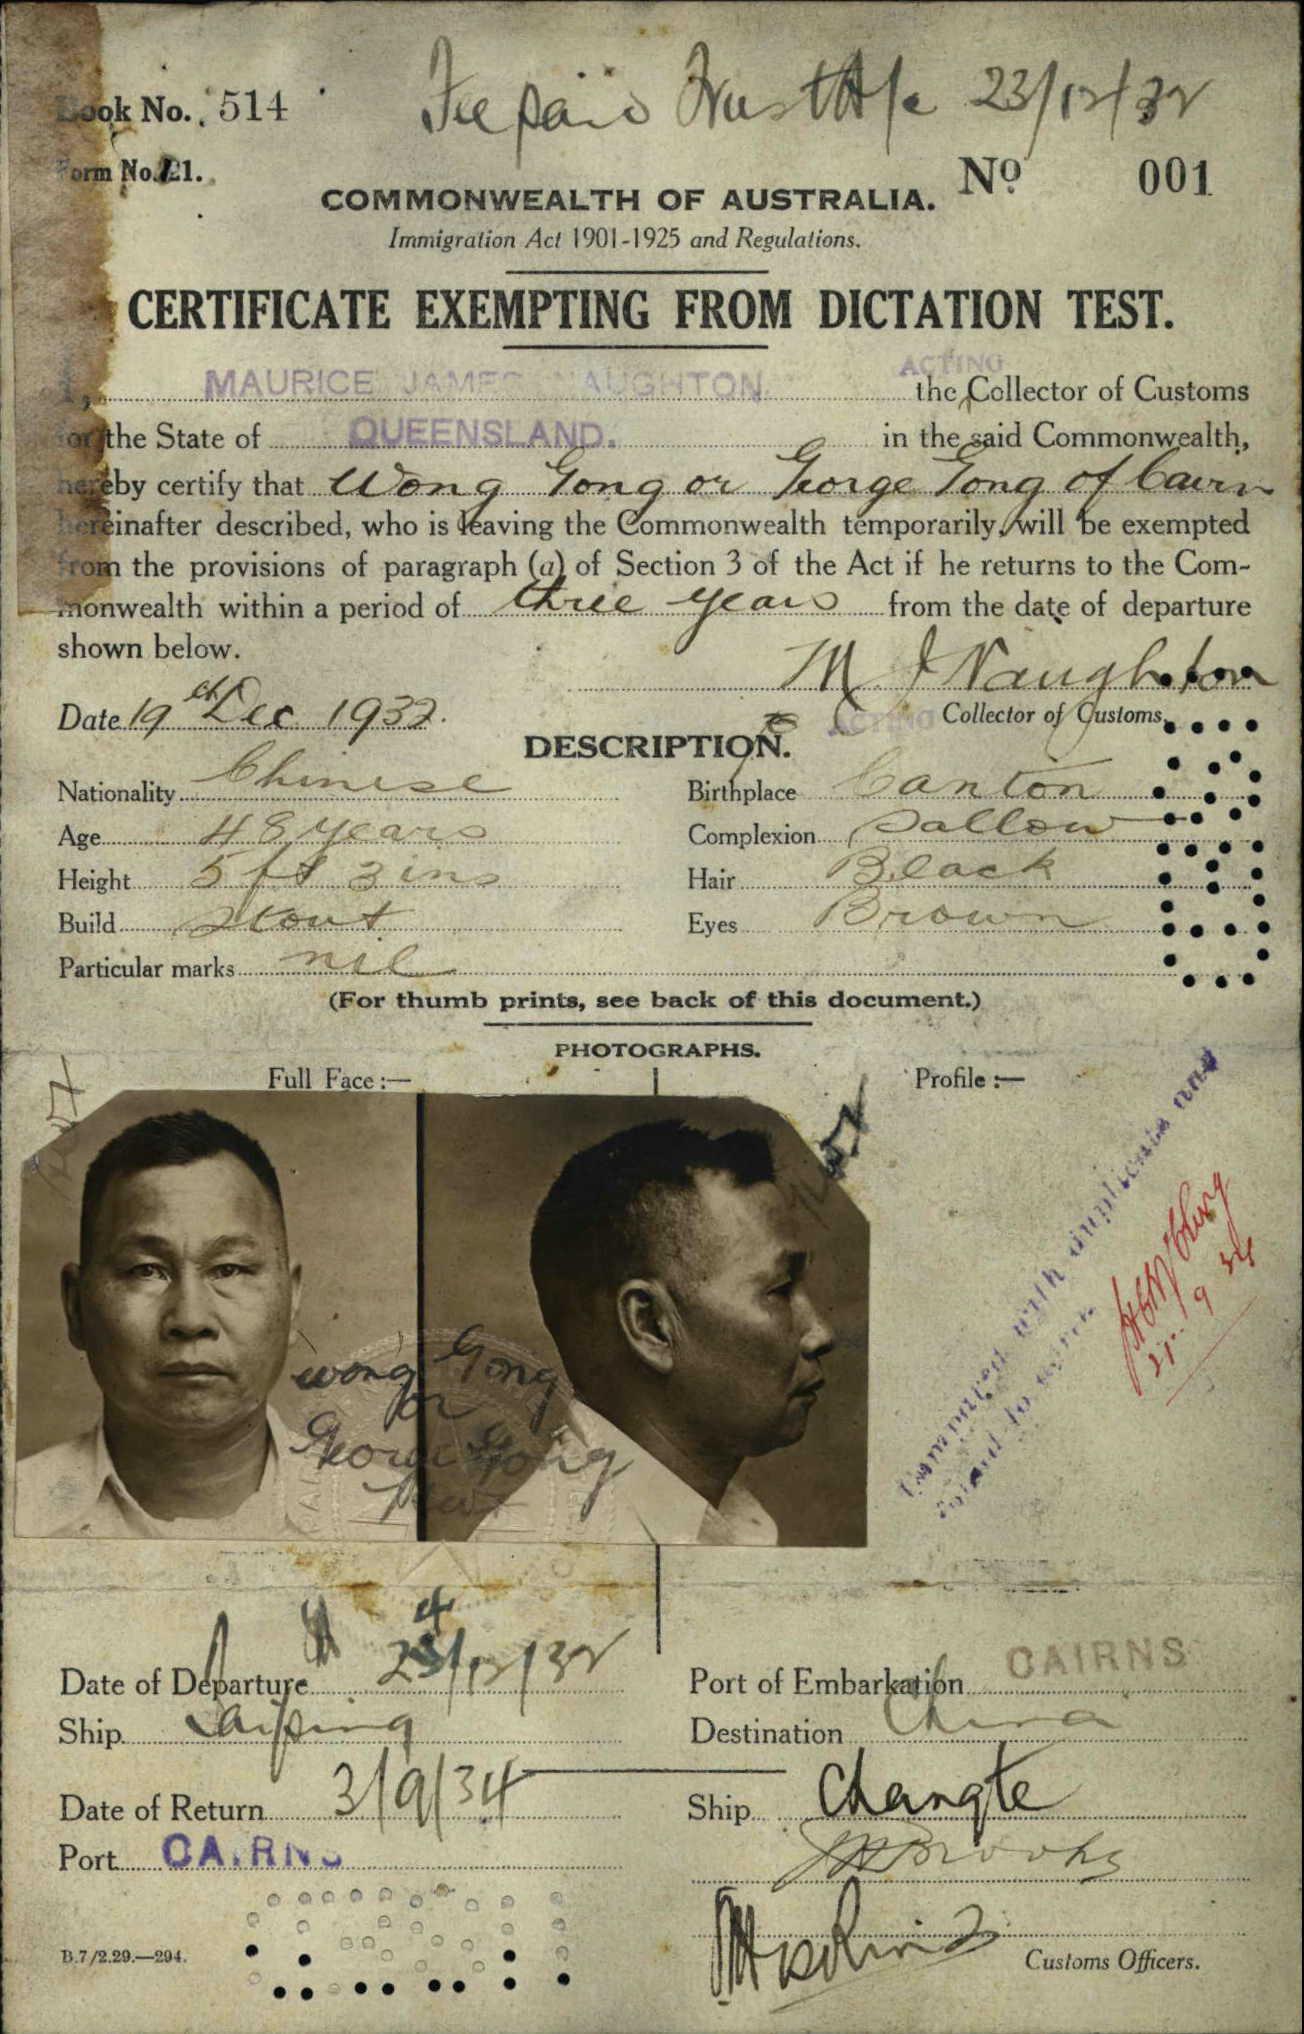 Book No. 514
Fee paid 23/12/32
Form No. 21.
No. 001
COMMONWEALTH OF AUSTRALIA.
Immigration Act 1901-1925 and Regulations.
CERTIFICATE EXEMPTING FROM DICTATION TEST.
I, MAURICE JAMES NAUGHTON ACTING the Collector of Customs
for the State of QUEENSLAND. in the said Commonwealth,
hereby certify that Wong Gong or George Gong of Cairns
hereinafter described, who is leaving the Commonwealth temporarily, will be exempted
from the provisions of paragraph (a) of Section 3 of the Act if he returns to the Com-
monwealth within a period of three years from the date of departure
shown below.
M J Naughton
Date 19th Dec 1932. ACTING Collector of Customs.
DESCRIPTION.
Nationality Chinese Birthplace Canton
Age 48 years Complexion Sallow
Height 5 ft 3 ins Hair Black
Build Stout Eyes Brown
Particular marks nil
(For thumb prints, see back of this document.)
PHOTOGRAPHS.
Full Face:— Profile:—
Wong Gong
or
George Gong
Compared with duplicate and
found to agree
9 34
Date of Departure 24/12/32 Port of Embarkation CAIRNS
Ship Taiping Destination China
Date of Return 3/9/34 Ship Changte
Port CAIRNS
B.7/2.29.—294.
Customs Officers.